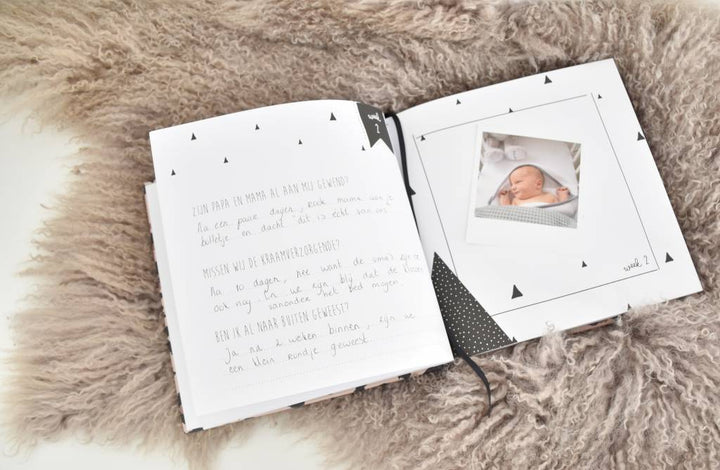 week
2
ZIJN PAPA EN MAMA AL AAN MIJ GEWEND?
Na een paar dagen, rook mama aan je
bolletje en dacht "dit is echt van ons
MISSEN WIJ DE KRAAMVERZORGENDE?
Na 10 dagen, nee want de oma's zijn er
ook nog. En we zijn blij dat de
vanander het bed mogen.
BEN IK AL NAAR BUITEN GEWEEST?
Ja na 2 weken binnen, zijn we
een klein rondje geweest.
week 2